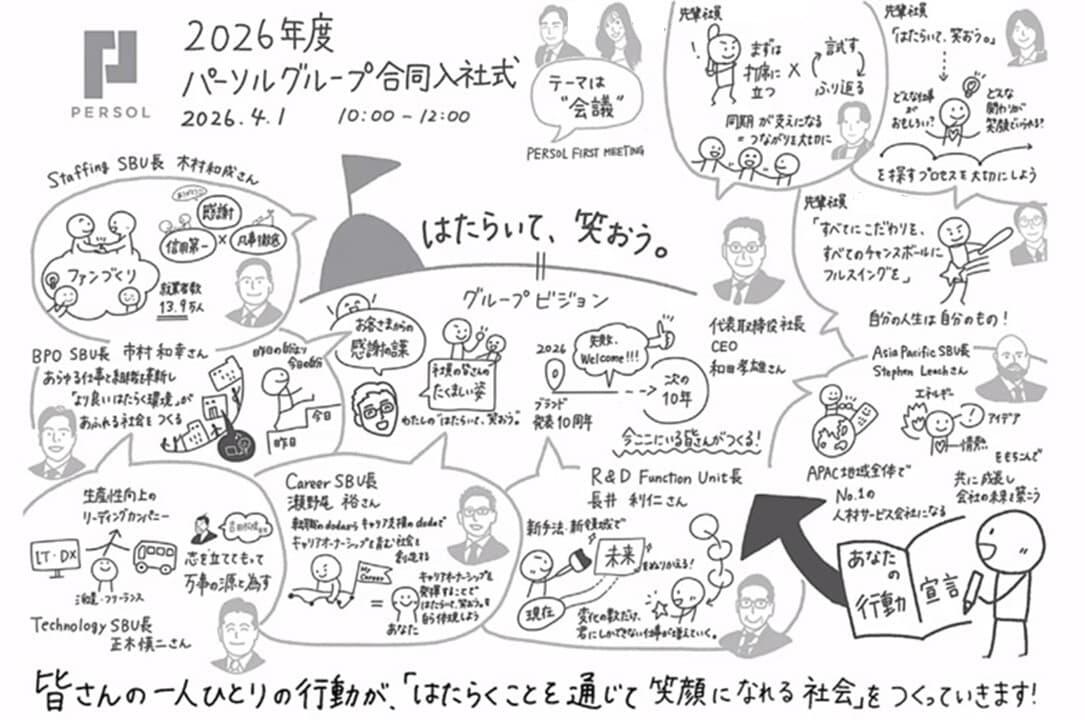 PERSOL
2026年度
パーソルグループ合同入社式
2026.4.1 10:00-12:00
テーマは
"会議"
PERSOL FIRST MEETING
先輩社員
まずは
打席に
立つ
×
試す
ふり返る
同期が支えになる
=つながりを大切に
先輩社員
「はたらいて、笑おう。」
どんな仕事
が
おもしろい?
どんな
関わりが
笑顔でいられる?
を探すプロセスを大切にしよう
先輩社員
「すべてにこだわりを、
すべてのチャンスボールに
フルスイングを」
Staffing SBU長 木村和成さん
感謝
信用第一
×
凡事徹底
ファンづくり
就業者数
13.9万人
はたらいて、笑おう。
グループビジョン
お客さまからの
感謝の課
社員の皆さんの
たくましい姿
わたしの"はたらいて、笑おう。"
2026
ブランド
発表10周年
失敗、
Welcome!!!
次の
10年
今ここにいる皆さんがつくる!
代表取締役社長
CEO
和田孝雄さん
BPO SBU長 市村和幸さん
あらゆる仕事と組織を革新し
「より良いはたらく環境」が
あふれる社会をつくる
昨日の自分より
今日の自分
今日
昨日
自分の人生は自分のもの!
Asia Pacific SBU長
Stephen Leachさん
エネルギー
アイデア
情熱
をもちこんで
共に成長し
会社の未来を築こう
APAC地域全体で
No.1の
人材サービス会社になる
生産性向上の
リーディングカンパニー
IT・DX
派遣・フリーランス
志を立てもって
万事の源と為す
Technology SBU長
正木慎二さん
Career SBU長
瀬野尾 裕さん
転職のdodaからキャリア支援のdodaで
キャリアオーナーシップを育む社会を
創造する
My
Career
=
あなた
キャリアオーナーシップを
発揮することで
はたらいて、笑おう。を
自ら体現しよう
R&D Function Unit長
長井 利仁さん
新手法・新領域で
未来
をぬりかえる!
現在
変化の数だけ、
君にしかできない仕事が増えていく。
あなた
の
行動
宣言
皆さんの一人ひとりの行動が、「はたらくことを通じて笑顔になれる社会」をつくっていきます!